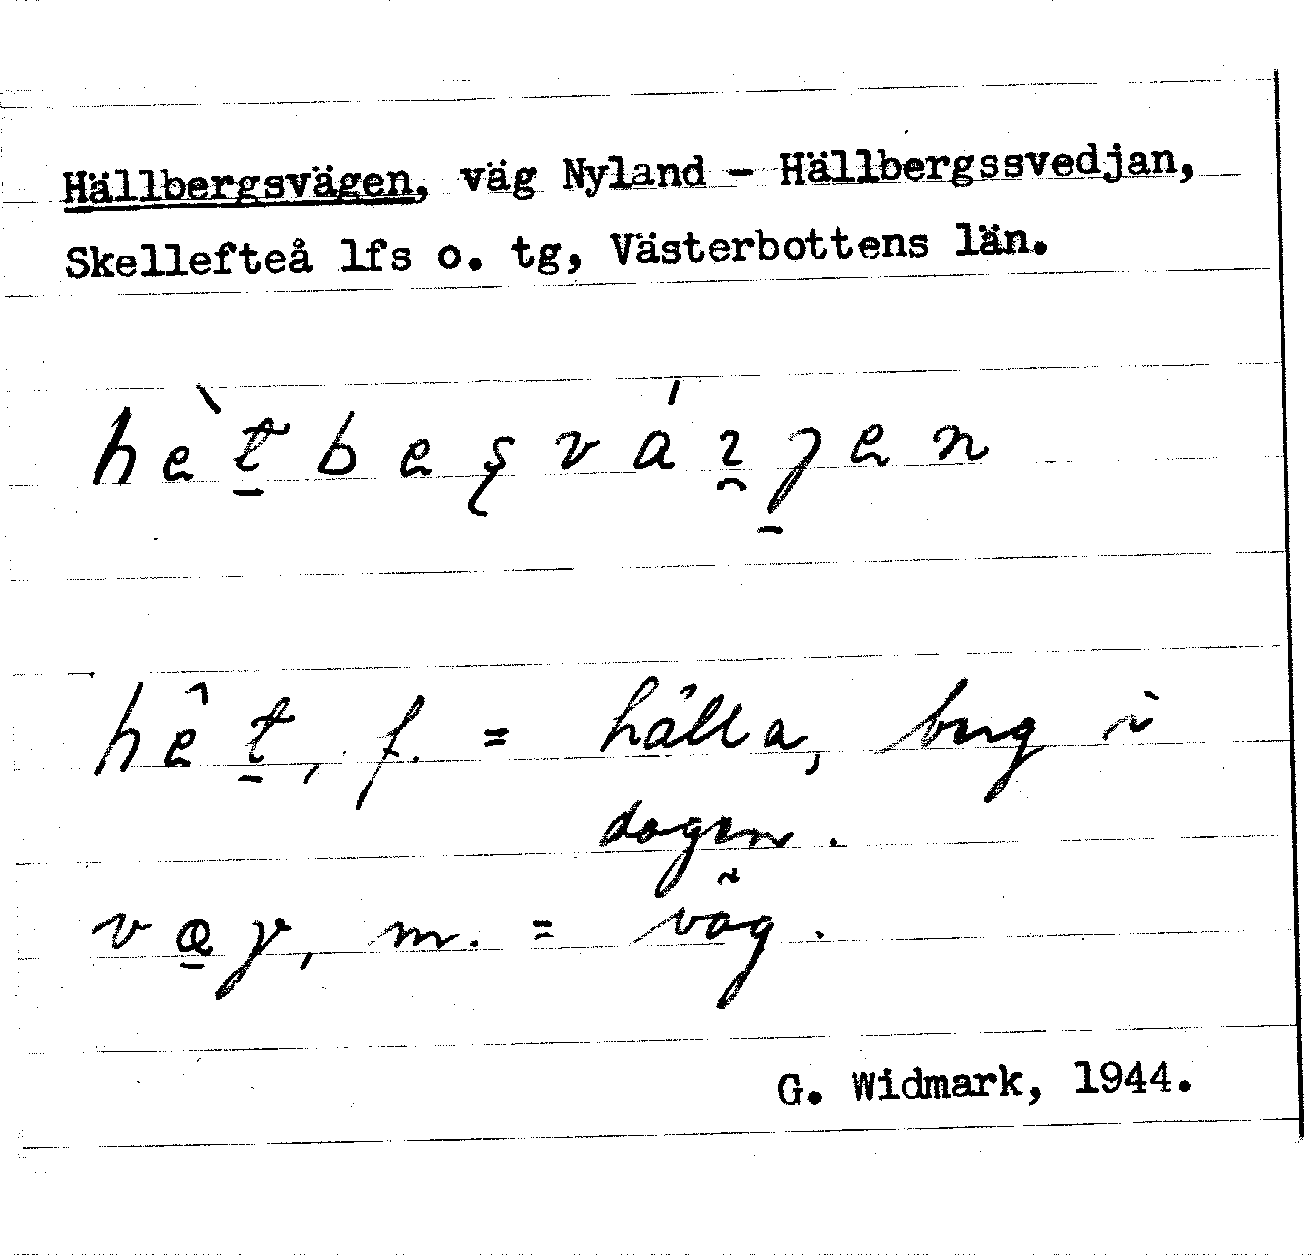 Hällbergsvägen, väg Nyland - Hällbergssvedjan,
Skellefteå lfs o. tg, Västerbottens län.
f. = hälla, berg i
dagen.
m. = väg.
G. Widmark, 1944.